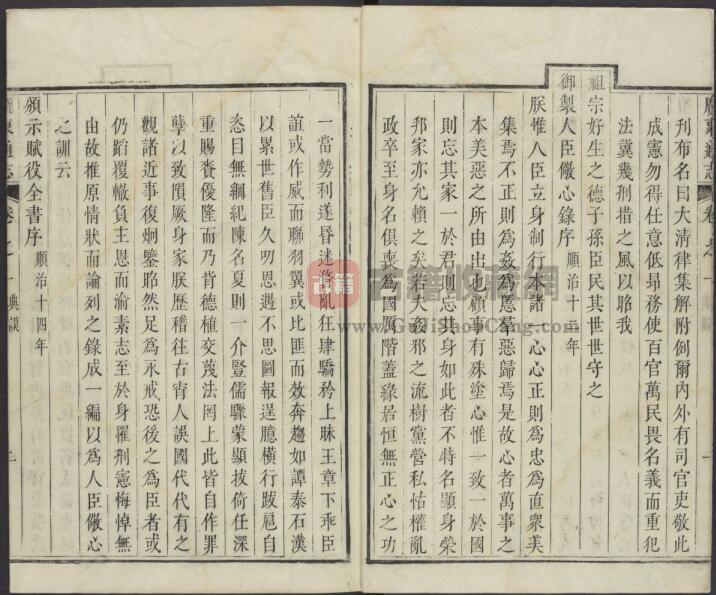 廣東通志 卷之一
刊布名曰大清律集解附例爾內外有司官吏敬此
成憲勿得任意低昻務使百官萬民畏名義而重犯
法冀幾刑措之風以昭我
祖宗好生之德子孫臣民其世世守之
御製人臣儆心錄序 順治十二年
朕惟人臣立身制行本諸一心心正則為忠為直衆美
集焉不正則為姦為慝羣惡歸焉是故心者萬事之
本美惡之所由出也顧事有殊塗心惟一致一於國
則忘其家一於君則忘其身如此者不特名顯身榮
邦家亦允賴之矣若夫姦邪之流樹黨營私怙權亂
政卒至身名俱喪為國厲階蓋緣居恒無正心之功
一當勢利遂昏迷瞀亂狂肆驕矜上昧王章下乖臣
誼或作威而聯羽翼或比匪而效奔趨如譚泰石漢
以累世舊臣久叨恩遇不思圖報逞臆橫行跋扈自
恣目無綱紀陳名夏則一介豎儒驟蒙顯拔倚任深
重賜賚優隆而乃背德植交蔑法罔上此皆自作罪
孽以致隕厥身家朕歷稽往古宵人誤國代代有之
觀諸近事復炯鑒昭然足為永戒恐後之為臣者或
仍蹈覆轍負主恩而渝素志至於身罹刑憲悔悼無
由故推原情狀而論列之錄成一編以為人臣儆心
之訓云
頒示賦役全書序 順治十四年
廣東通志 卷之一 典謨 二
古籍
古籍收藏网
www.GuJiShouCang.com